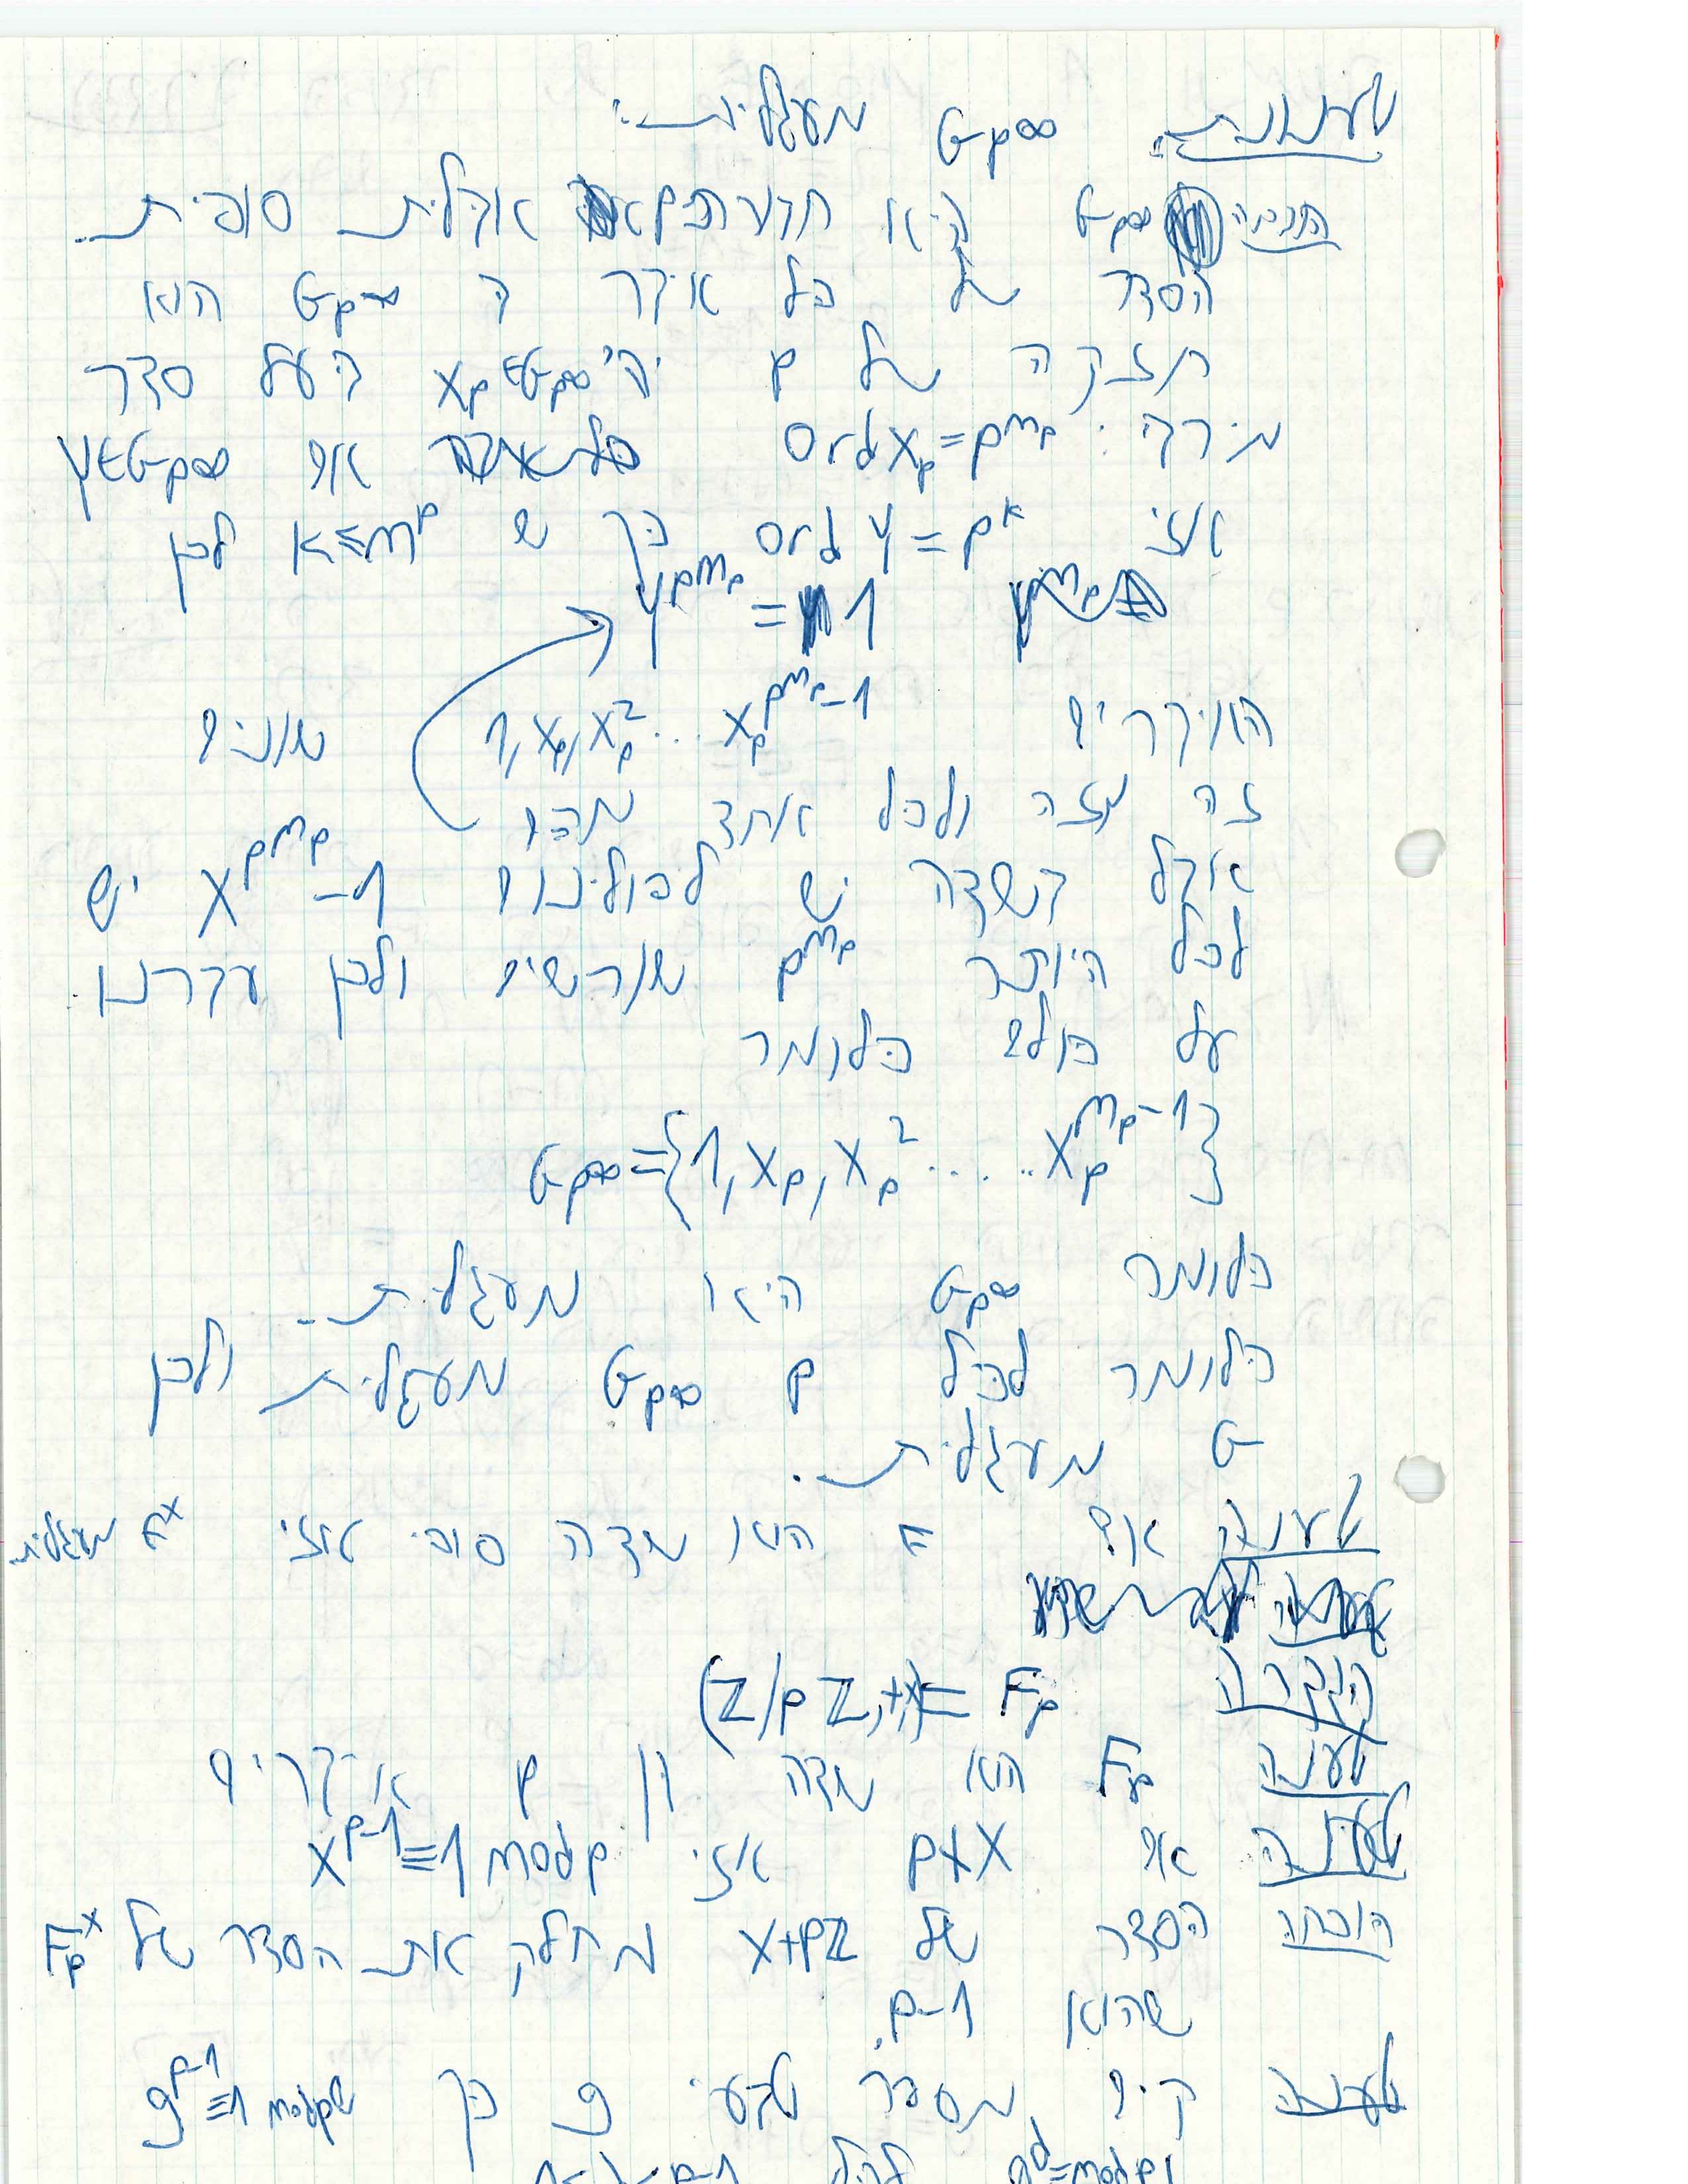 טענת G_{p^∞} מעגלית:
הוכחה G_{p^∞} היא אבלית סופית.
הסדר של כל איבר ב G_{p^∞} הוא
חזקה של p יהי x_p∈G_{p^∞} בעל סדר
מירבי: ord x_p = p^{m_p} אם y∈G_{p^∞}
אזי ord y = p^k כך ש k≤m_p לכן
y^{p^{m_p}} = 1
האיברים 1, x_p, x_p^2 ... x_p^{p^{m_p}-1} שונים
זה מזה ולכל אחד מהם
אבל בשדה יש לפולינום x^{p^{m_p}} - 1 יש
לכל היותר p^{m_p} שורשים ולכן עברנו
על כולם כלומר
G_{p^∞} = {1, x_p, x_p^2 ..... x_p^{m_p-1}}
כלומר G_{p^∞} היא מעגלית.
כלומר לכל p G_{p^∞} מעגלית ולכן
G מעגלית.
טענה אם F הוא שדה סופי אזי F^x מעגלית.
הגדרה F_p = (Z/pZ, +, x)
טענה F_p הוא שדה בן p איברים
טענה אם p∤x אזי x^{p-1} ≡ 1 mod p
הוכחה הסדר של x+pZ מחלק את הסדר של F_p^x
שהוא p-1.
טענה קיים מספר טבעי g כך ש g^{p-1} ≡ 1 mod p